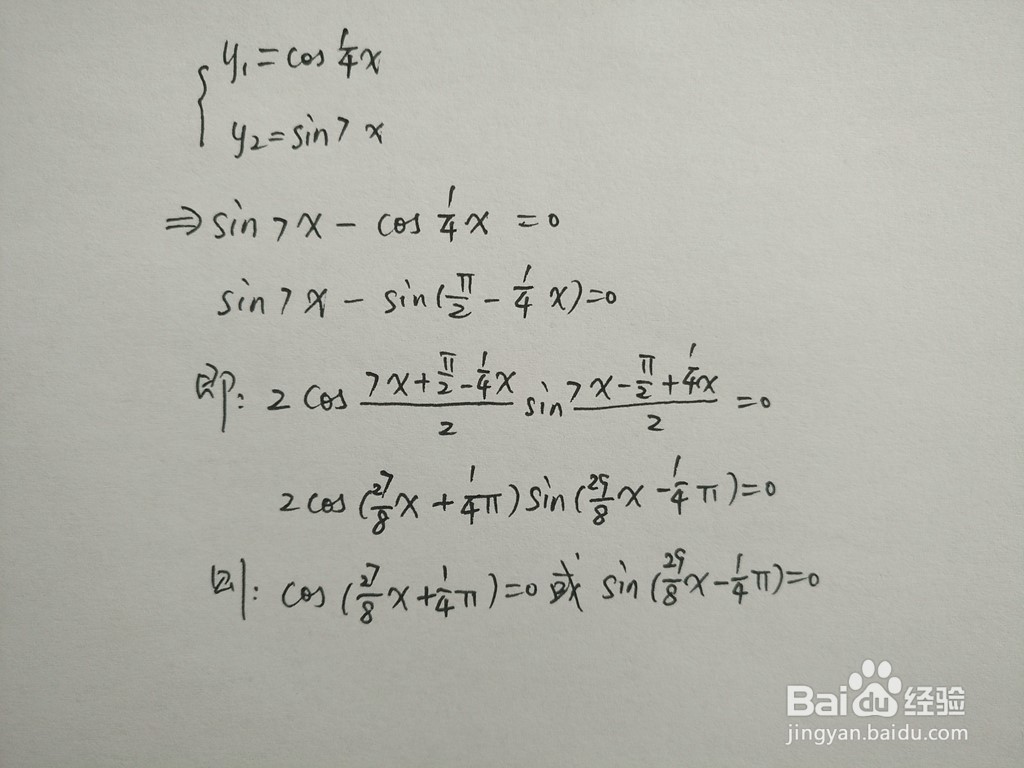 y₁=cos 1/4 x
y₂=sin7x
⇒ sin7x - cos 1/4 x = 0
sin7x - sin(π/2 - 1/4 x)=0
即: 2cos (7x+π/2-1/4x)/2 sin (7x-π/2+1/4x)/2 =0
2cos(27/8x+1/4π)sin(29/8x-1/4π)=0
则: cos(27/8x+1/4π)=0 或 sin(29/8x-1/4π)=0
Bai du 经验
jingyan.baidu.com